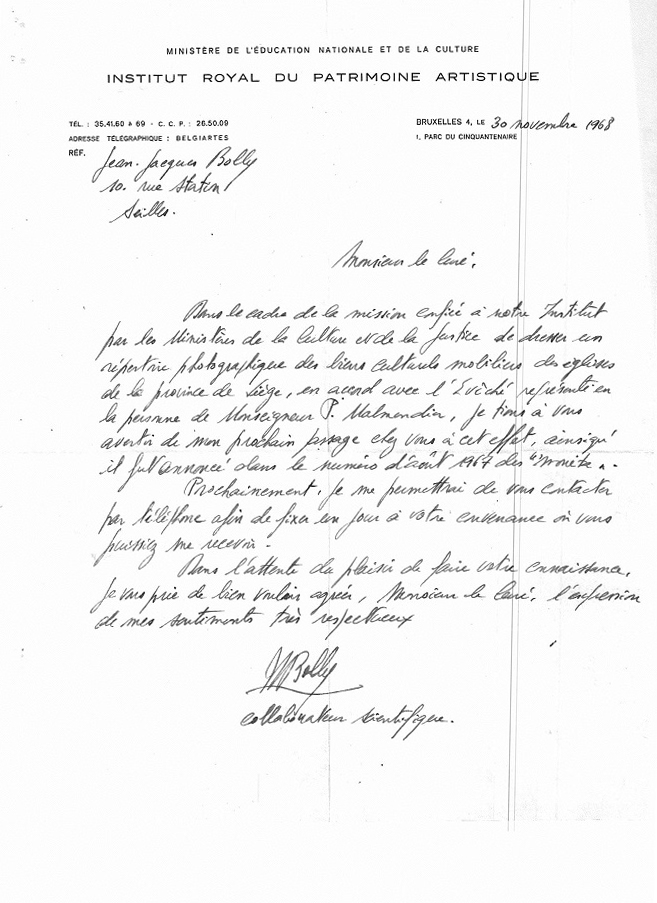 MINISTÈRE DE L'ÉDUCATION NATIONALE ET DE LA CULTURE
INSTITUT ROYAL DU PATRIMOINE ARTISTIQUE
TÉL. : 35.41.60 à 69 - C. C. P. : 26.50.09
ADRESSE TÉLÉGRAPHIQUE : BELGIARTES
RÉF.
BRUXELLES 4, LE 30 novembre 1968
1, PARC DU CINQUANTENAIRE
Jean-Jacques Bolly
10. rue Statin
Seilles.
Monsieur le Curé,
Dans le cadre de la mission confiée à notre Institut
par les Ministères de la Culture et de la Justice de dresser un
répertoire photographique des biens culturels mobiliers des églises
de la province de Liège, en accord avec l'Evêché représenté en
la personne de Monseigneur P. Malmendier, je tiens à vous
avertir de mon prochain passage chez vous à cet effet, ainsi qu'
il fut annoncé dans le numéro d'août 1967 des
Prochainement, je me permettrai de vous contacter
par téléphone afin de fixer un jour à votre convenance où vous
puissiez me recevoir.
Dans l'attente du plaisir de faire votre connaissance,
je vous prie de bien vouloir agréer, Monsieur le Curé, l'expression
de mes sentiments très respectueux
JJBolly
collaborateur scientifique.